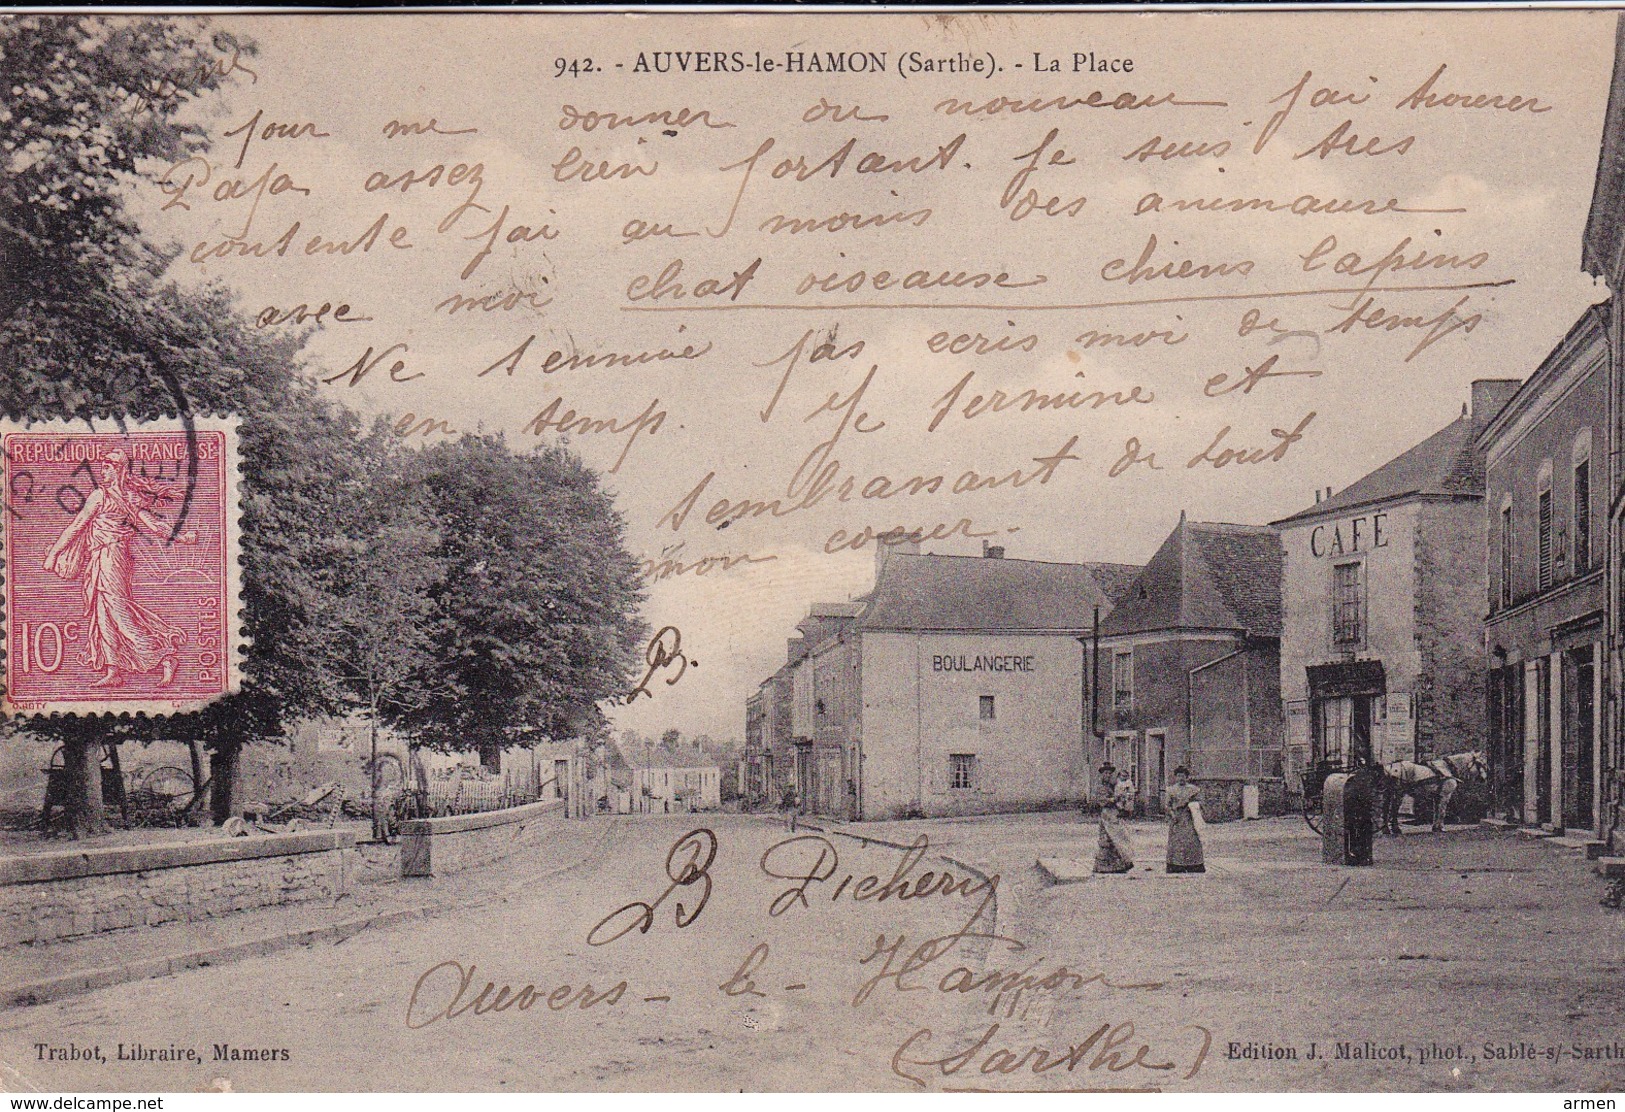 942. - AUVERS-le-HAMON (Sarthe). - La Place
pour me donner du nouveau jai trouver
Papa assez bien portant. Je suis tres
contente jai au moins des animause
avec moi chat oiseause chiens lapins
Ne tennuie pas ecris moi de temps
en temp. Je termine et
tembrassant de tout
mon coeur.
B.
RÉPUBLIQUE FRANÇAISE
10c
POSTES
O. ROTY
07
CAFÉ
BOULANGERIE
B Pichery
Auvers-le-Hamon
(Sarthe)
Trabot, Libraire, Mamers
Edition J. Malicot, phot., Sablé-s/-Sarth
delcampe.net
armen